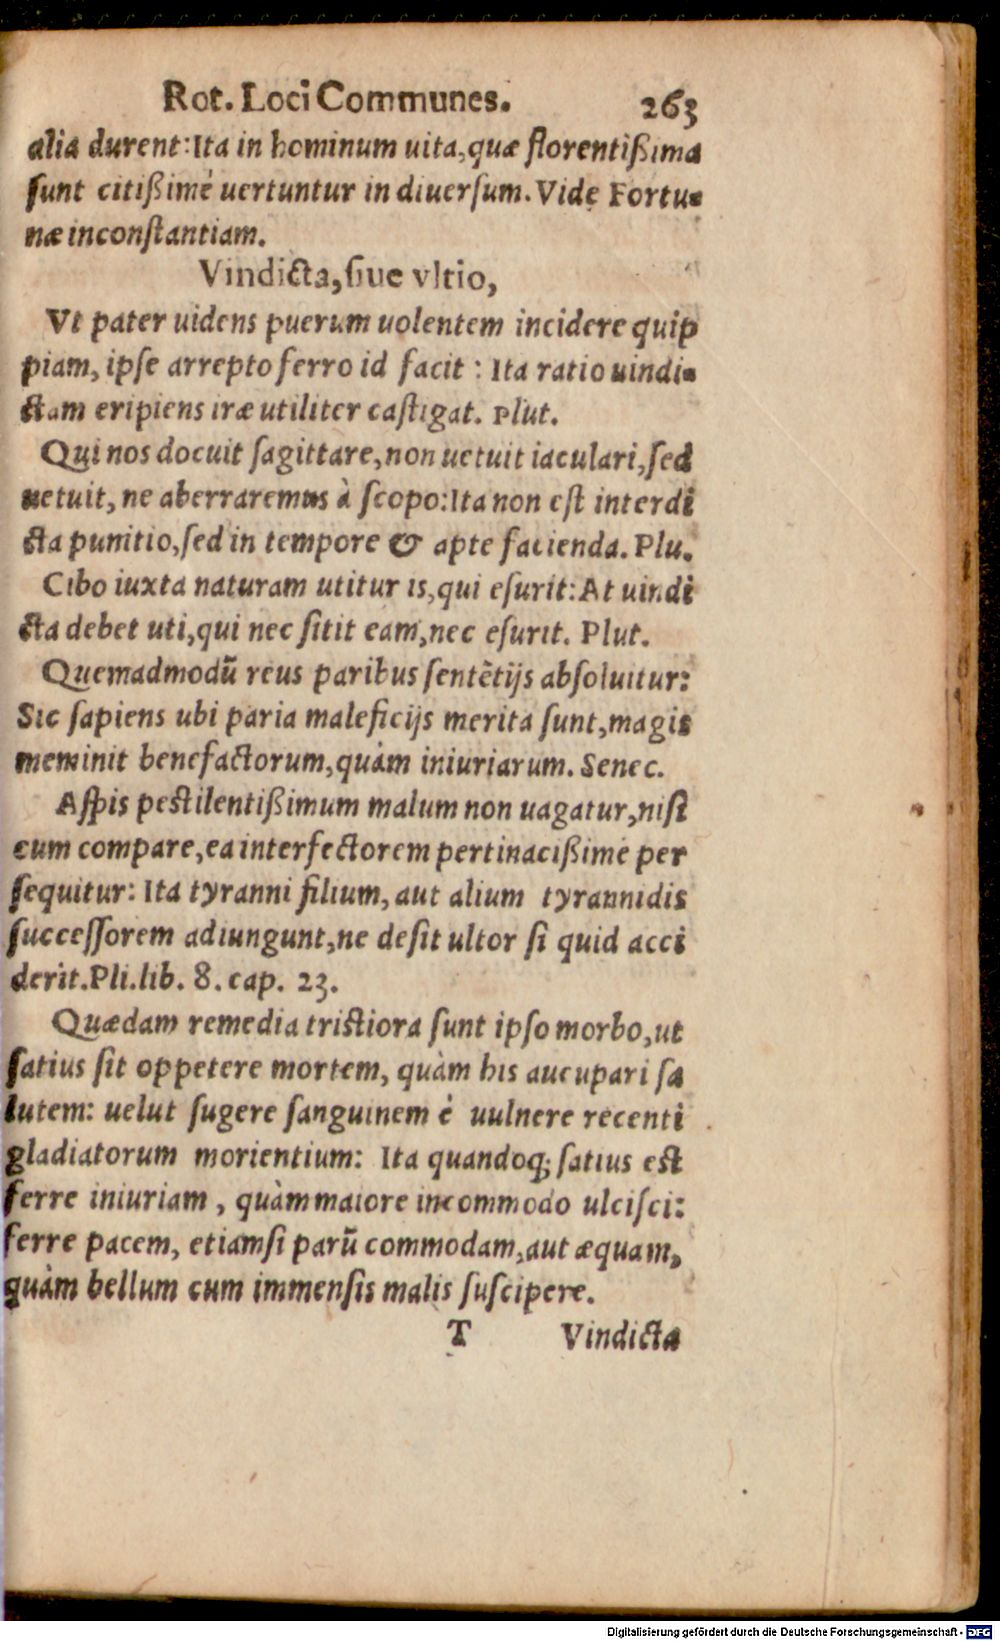 Rot. Loci Communes. 263
alia durent: Ita in hominum uita, quæ florentißima
ſunt citißimè uertuntur in diuerſum. Vide Fortu-
næ inconſtantiam.
Vindicta, ſiue vltio,
Vt pater uidens puerum uolentem incidere quip
piam, ipſe arrepto ferro id facit : Ita ratio uindi-
ctam eripiens iræ utiliter caſtigat. Plut.
Qui nos docuit ſagittare, non uetuit iaculari, ſed
uetuit, ne aberraremus à ſcopo: Ita non eſt interdi
cta punitio, ſed in tempore & apte facienda. Plu.
Cibo iuxta naturam utitur is, qui eſurit: At uindi
cta debet uti, qui nec ſitit eam, nec eſurit. Plut.
Quemadmodū reus paribus ſentētijs abſoluitur:
Sic ſapiens ubi paria maleficijs merita ſunt, magis
meminit benefactorum, quàm iniuriarum. Senec.
Aſpis peſtilentißimum malum non uagatur, niſi
cum compare, ea interfectorem pertinacißimè per
ſequitur: Ita tyranni filium, aut alium tyrannidis
ſucceſſorem adiungunt, ne deſit ultor ſi quid acci
derit. Pli. lib. 8. cap. 23.
Quædam remedia triſtiora ſunt ipſo morbo, ut
ſatius ſit oppetere mortem, quàm his aucupari ſa
lutem: uelut ſugere ſanguinem è uulnere recenti
gladiatorum morientium: Ita quandoq; ſatius eſt
ferre iniuriam , quàm maiore incommodo ulciſci:
ferre pacem, etiamſi parū commodam, aut æquam,
quàm bellum cum immenſis malis ſuſcipere.
T Vindicta
Digitalisierung gefördert durch die Deutsche Forschungsgemeinschaft - DFG